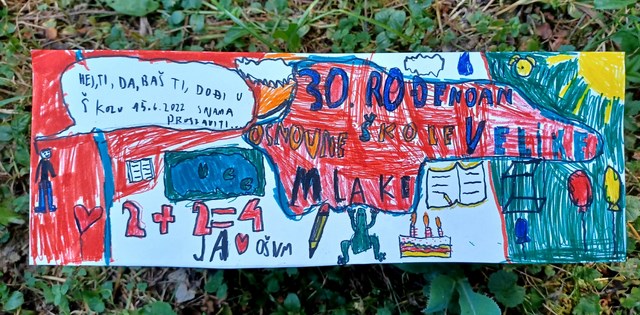 HEJ, TI, DA, BAŠ TI, DOĐI U
Š KOLU 15.6.2022 SNAMA
PROSLAVITI...
30. ROĐENDAN
OSNOVNE ŠKOLE VELIKE
MLAKE
2+2=4
JA OŠVM